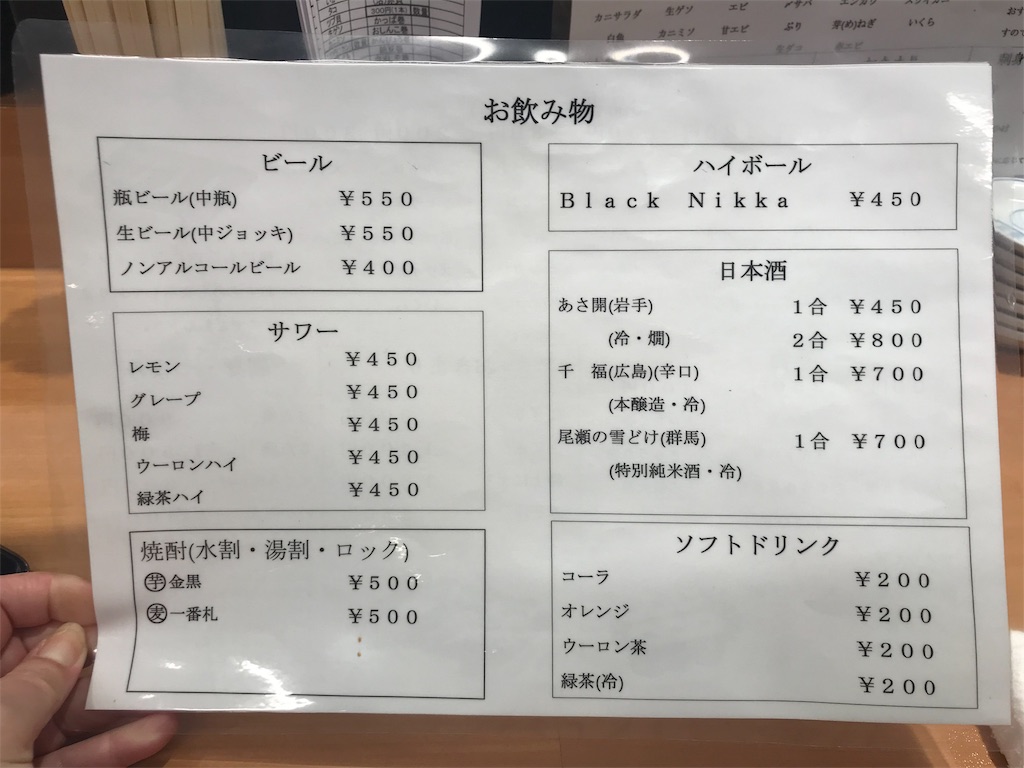 カニサラダ 生ゲソ エビ
白魚 カニミソ 甘エビ ぶり 芽(め)ねぎ いくら
かっぱ巻
おしんこ巻
お飲み物
ビール
瓶ビール(中瓶) ￥５５０
生ビール(中ジョッキ) ￥５５０
ノンアルコールビール ￥４００
サワー
レモン ￥４５０
グレープ ￥４５０
梅 ￥４５０
ウーロンハイ ￥４５０
緑茶ハイ ￥４５０
焼酎(水割・湯割・ロック)
㊀芋 金黒 ￥５００
麦 一番札 ￥５００
ハイボール
Ｂｌａｃｋ Ｎｉｋｋａ ￥４５０
日本酒
あさ開(岩手) １合 ￥４５０
(冷・燗) ２合 ￥８００
千 福(広島)(辛口) １合 ￥７００
(本醸造・冷)
尾瀬の雪どけ(群馬) １合 ￥７００
(特別純米酒・冷)
ソフトドリンク
コーラ ￥２００
オレンジ ￥２００
ウーロン茶 ￥２００
緑茶(冷) ￥２００